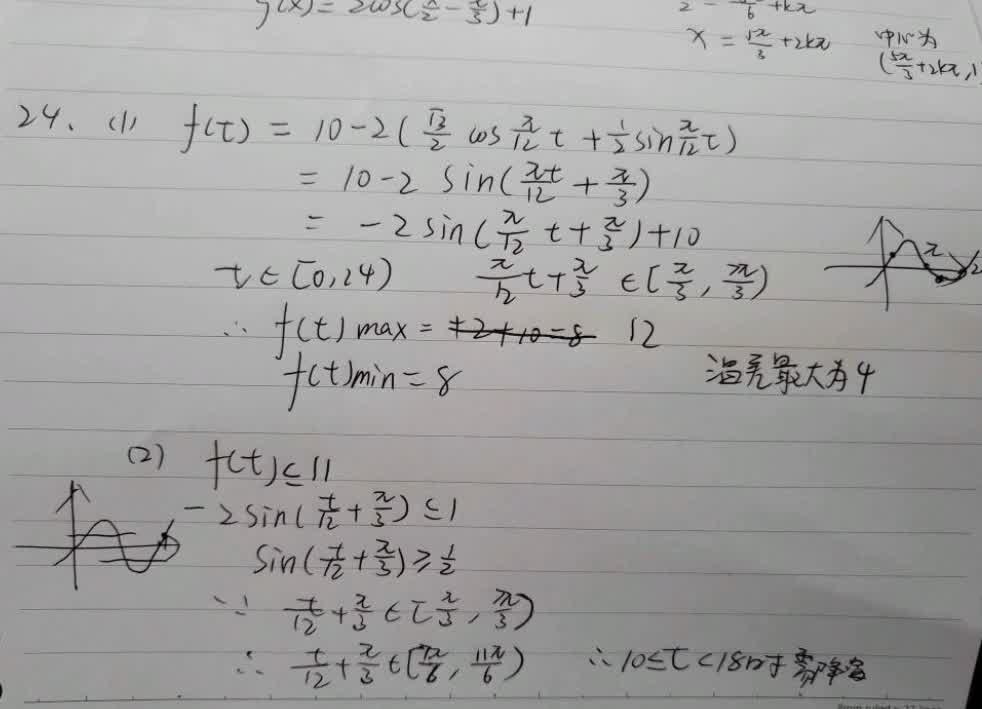 g(x) = 2cos(x/2 - π/3) + 1
x = 5π/3 + 2kπ 中心为
(5π/3 + 2kπ, 1
24. (1) f(t) = 10 - 2(√3/2 cos π/12 t + 1/2 sin π/12 t)
= 10 - 2 sin(πt/12 + π/3)
= -2 sin(π/12 t + π/3) + 10
t ∈ [0, 24) π/12 t + π/3 ∈ [π/3, 7π/3)
∴ f(t) max = 12
f(t) min = 8 温差最大为4
(2) f(t) ≤ 11
-2 sin(t/12 + π/3) ≤ 1
sin(t/12 + π/3) ≥ 1/2
∵ t/12 + π/3 ∈ [π/3, 7π/3)
∴ t/12 + π/3 ∈ [7π/6, 11π/6) ∴ 10 ≤ t < 18时 需降温